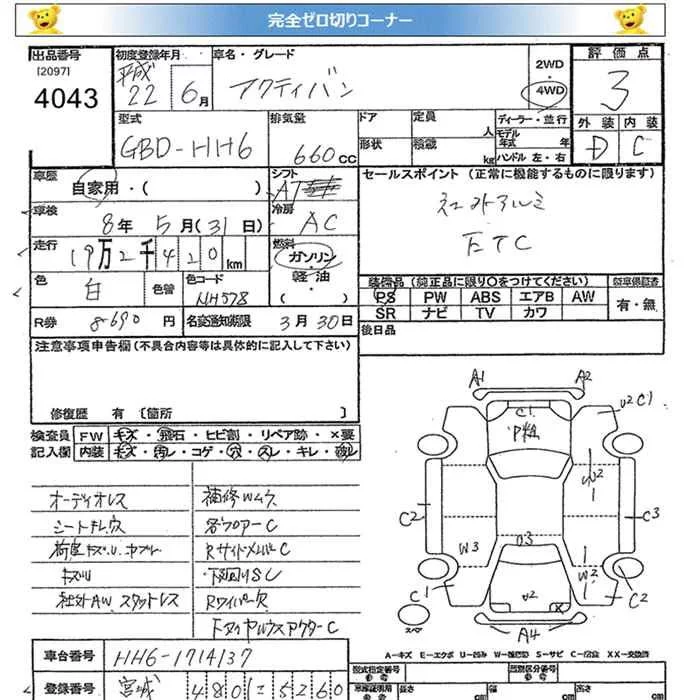 完全ゼロ切りコーナー
出品番号
[2097]
4043
初度登録年月
平成
22年 6月
車名・グレード
アクティバン
2WD
・
4WD
評価点
3
外装 内装
D C
型式
GBD-HH6
排気量
660cc
ドア
定員
人
形状
積載
kg
ディーラー・並行
モデル年式 年
ハンドル 左・右
車歴
自家用・( )
シフト
AT
車検
8年 5月(31日)
冷房
AC
走行
19万2千420km
燃料
ガソリン
・
軽油
・
( )
色
白
色替
色コード
NH578
R券
8690円
名変通知期限
3月30日
セールスポイント (正常に機能するものに限ります)
社外アルミ
ETC
装備品 (純正品に限り○をつけてください)
PS PW ABS エアB AW
SR ナビ TV カワ
新車保証書
有・無
後日品
注意事項申告欄(不具合内容等は具体的に記入して下さい)
修復歴 有 〔箇所 〕
検査員
記入欄
FW キズ・飛石・ヒビ割・リペア跡・×要
内装 キズ・汚レ・コゲ・穴・スレ・キレ・
オーディオレス
シートキレ穴
キズ
社外AW スタットレス
補修Wムラ
各フロアーC
RサイドメンバーC
下回りSC
Rワイパー欠
A1 A2
C1
U2 C1
U2
C2
C3
W3
U3
W2
C1
U2
C2
スペア
A4
A-キズ E-エクボ U-凹み W-補修跡 S-サビ C-腐食 XX-交換済
車台番号
HH6-1714137
登録番号
宮城 480 い 5260
型式指定番号
類別区分番号
長さ
幅
高さ